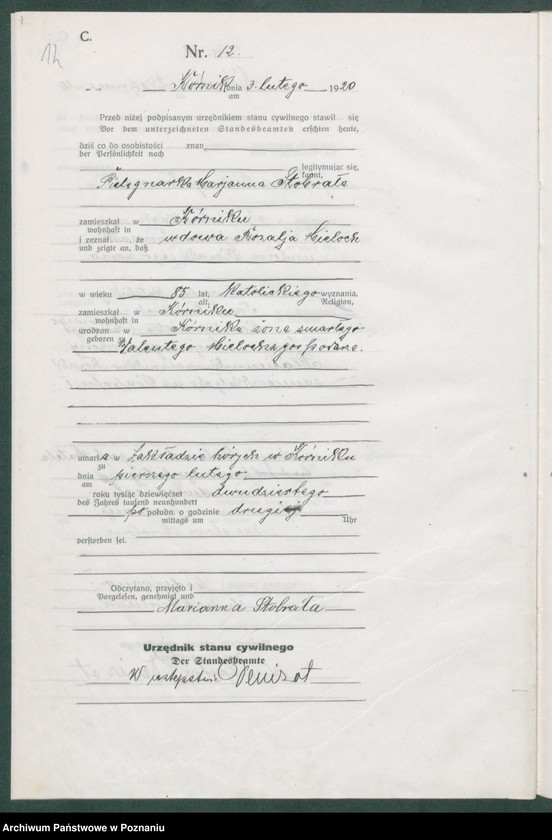 C.
12
Nr. 12.
Kórnik dnia 3. lutego 1920
am
Przed niżej podpisanym urzędnikiem stanu cywilnego stawił się
Vor dem unterzeichneten Standesbeamten erschien heute,
dziś co do osobistości znan
der Persönlichkeit nach
legitymując się,
kannt,
Pielęgnarka Marjanna Stobrała
zamieszkał w Kórniku
wohnhaft in
i zeznał, że wdowa Rozalja Mieloch
und zeigte an, daß
w wieku 85 lat, katolickiego wyznania,
alt, Religion,
zamieszkał w Kórniku
wohnhaft in
urodzon w Kórniku żona zmarłego
geboren zu
Walentego Mielocha gospodarza.
umarła w zakładzie chorych w Kórniku
zu
dnia pierszego lutego
am
roku tysiąc dziewięćset dwudziestego
des Jahres tausend neunhundert
po połudn. o godzinie drugiej
mittags um Uhr
verstorben sei.
Odczytano, przyjęto i
Vorgelesen, genehmigt und
Marianna Stobrała
Urzędnik stanu cywilnego
Der Standesbeamte
W zastępstwie
Archiwum Państwowe w Poznaniu